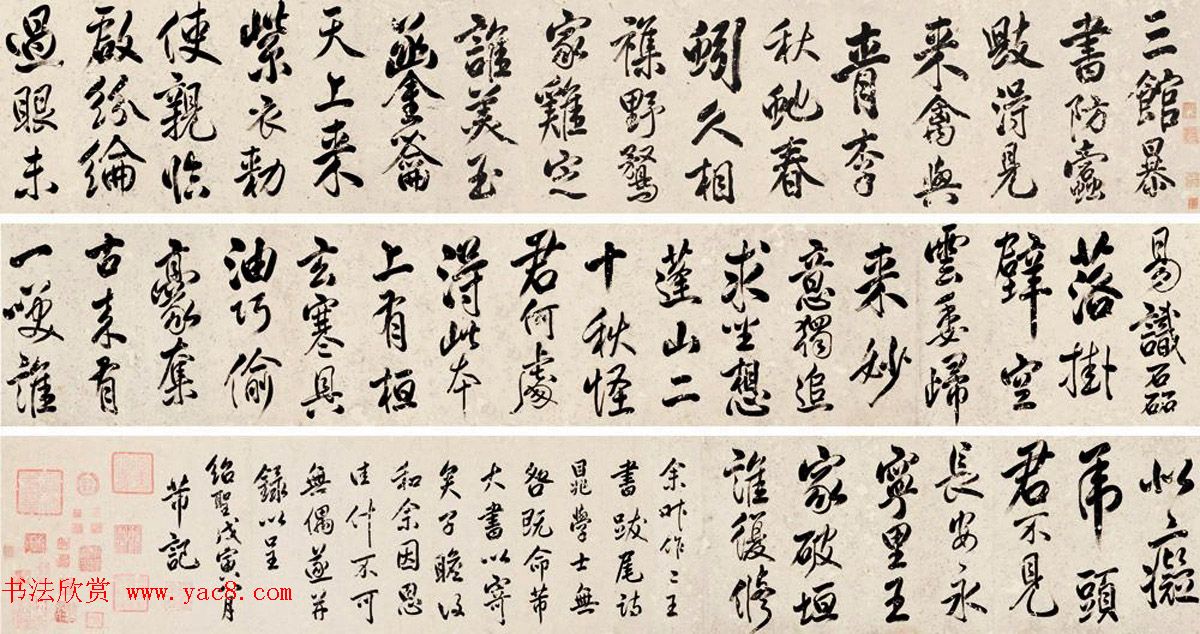 三館暴
書防蠹
毀得見
来禽與
青李
秋虵春
蚓久相
襍野鶩
家雞定
誰美玉
函金籥
天上来
紫衣勑
使親臨
啟紛綸
過眼未
易識磊
落掛
壁空
雲委歸
来妙
意獨追
求坐想
蓬山二
十秋怪
君何處
得此本
上有桓
玄寒具
油巧偷
豪奪
古来有
一咲誰
似癡
虎頭
君不見
長安永
寧里王
家破垣
誰復脩
余昨作二王
書跋尾詩
晁學士無
咎既命芾
大書以寄
矣子瞻復
和余因思
佳什不可
無偶遂并
錄以呈
紹聖戊寅八月
芾記
书法欣赏 www.yac8.com